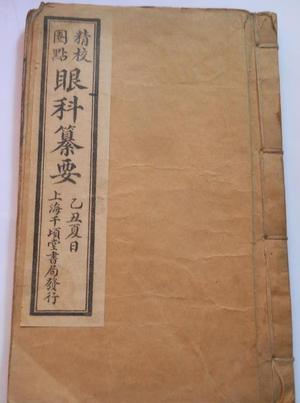 精校
圈點
眼科纂要
乙丑夏日
上海千頃堂書局發行